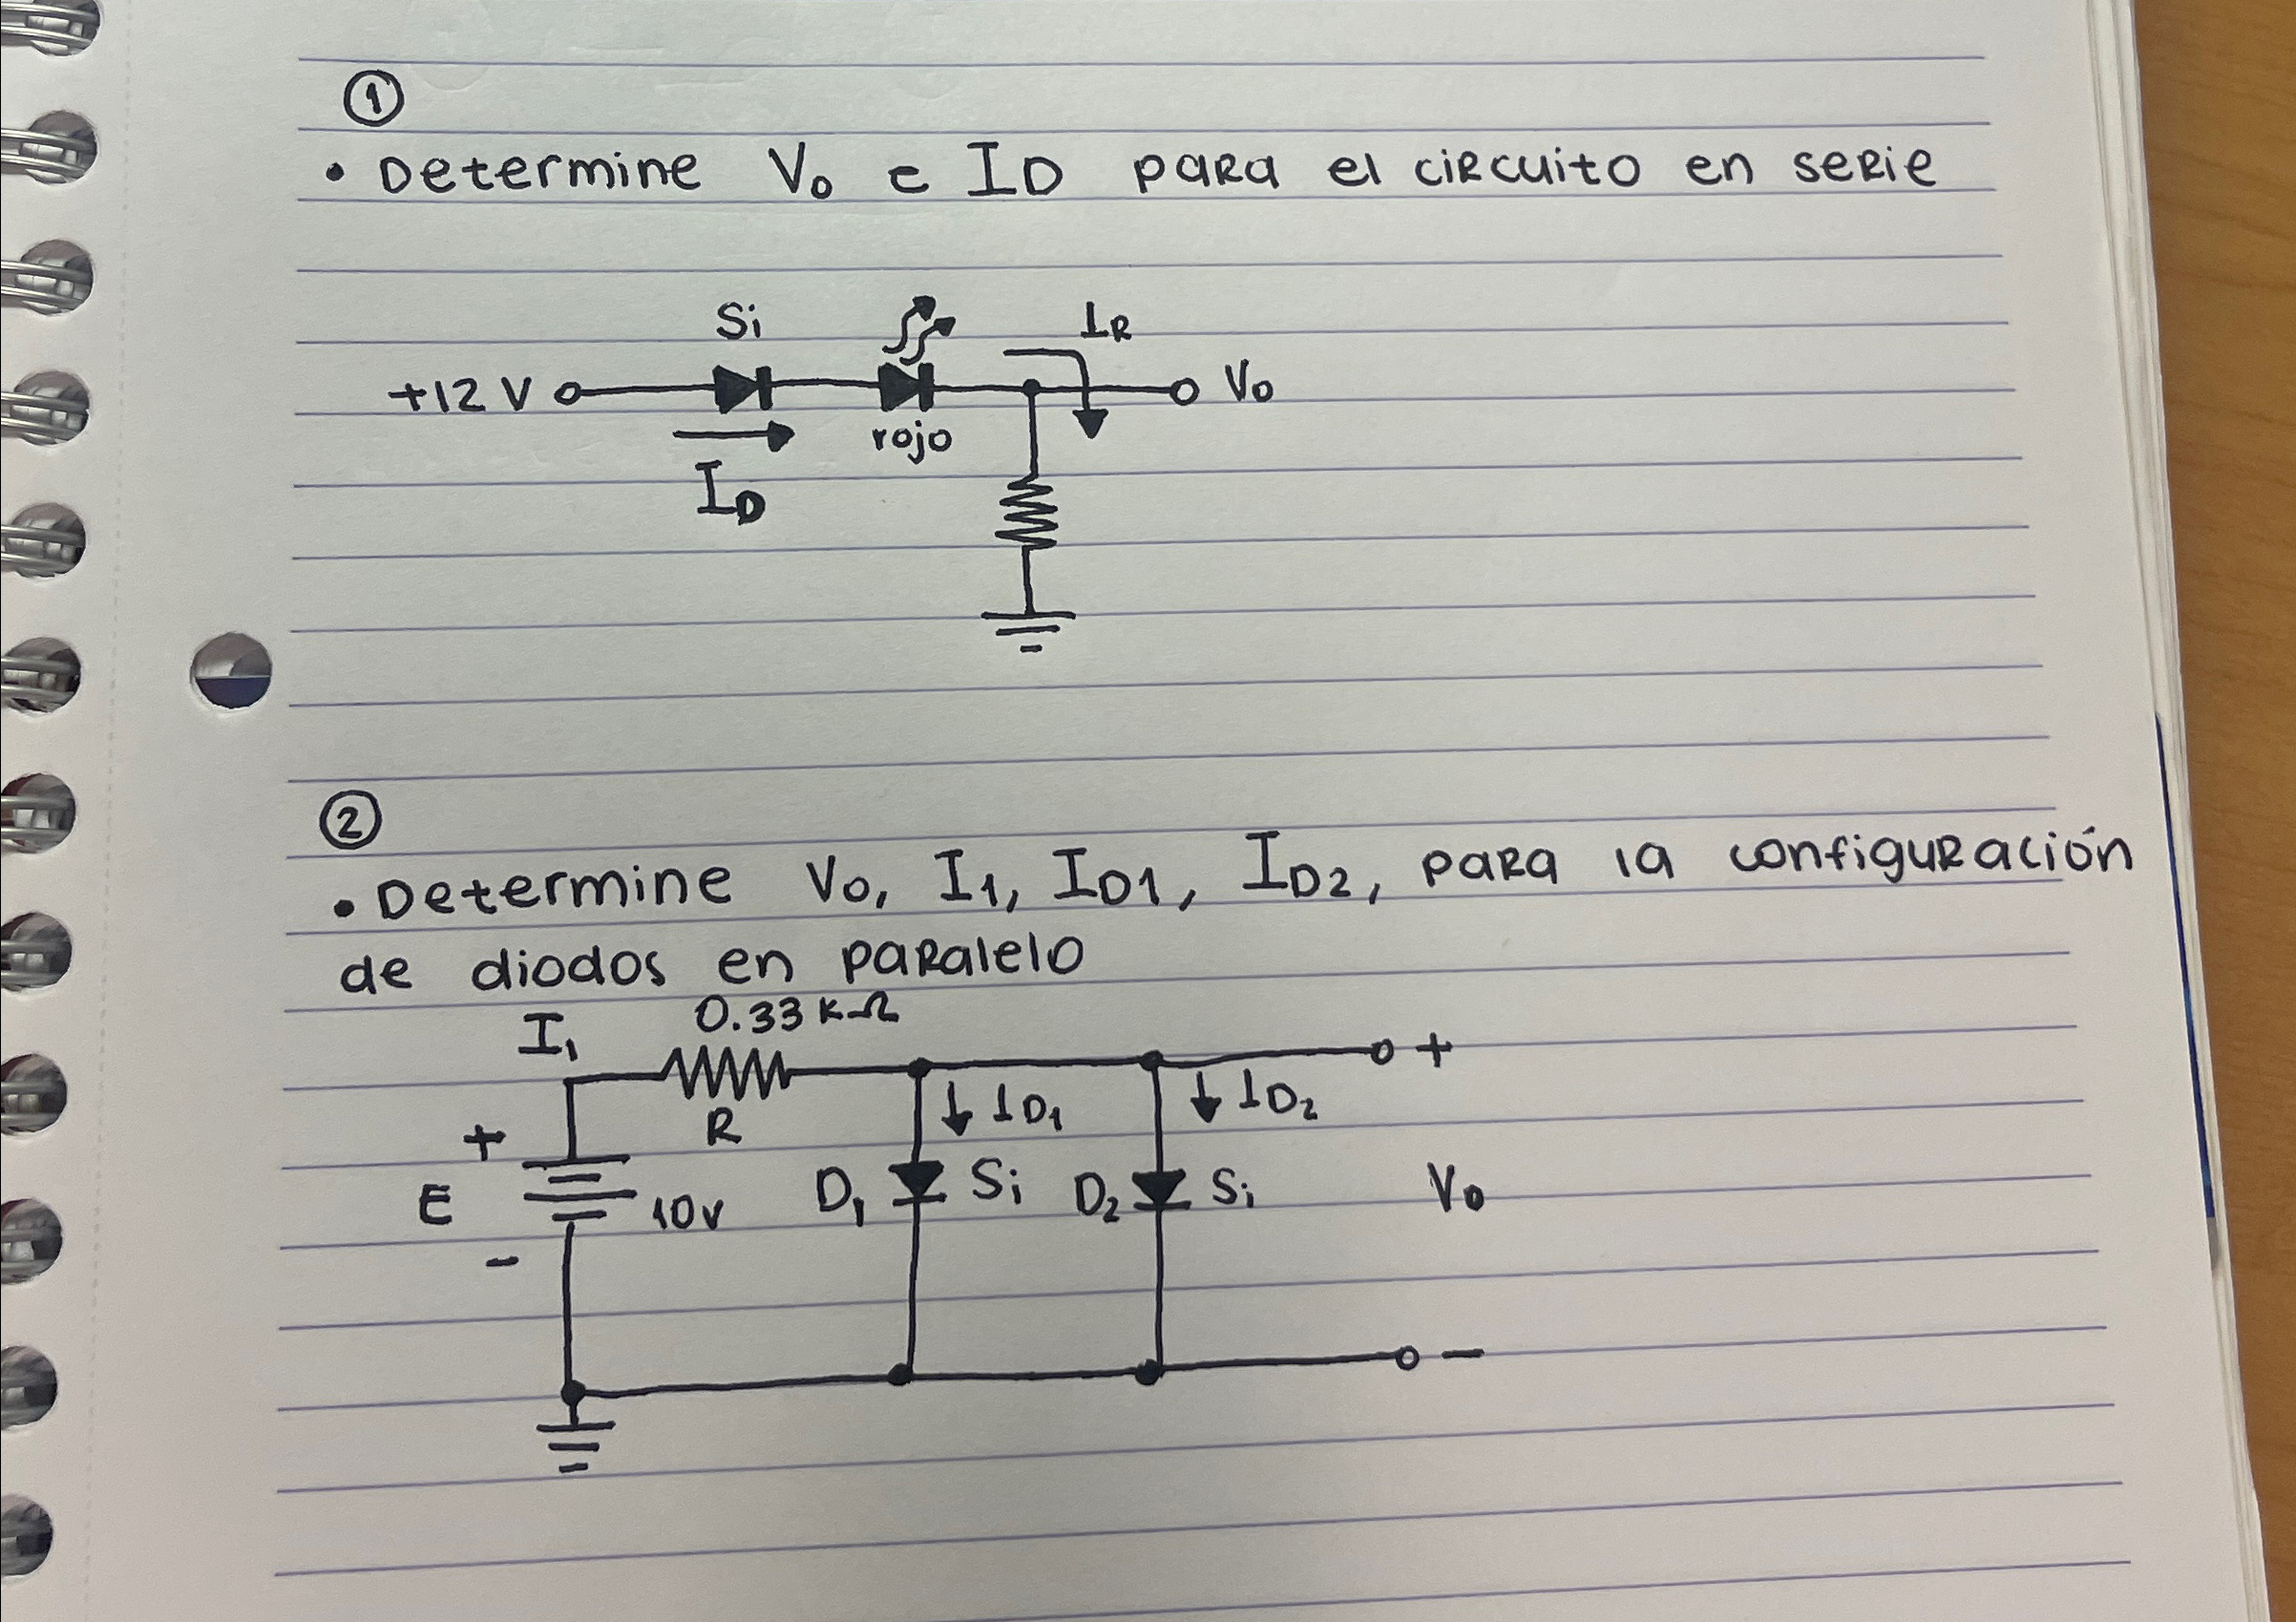 ①
• Determine Vo e ID para el circuito en serie
Si
IR
+12 V
Vo
rojo
ID
②
• Determine Vo, I1, ID1, ID2, para la configuración
de diodos en paralelo
0.33 KΩ
I1
+
R
ID1
ID2
+
E
10v
D1
Si
D2
Si
Vo
-
-